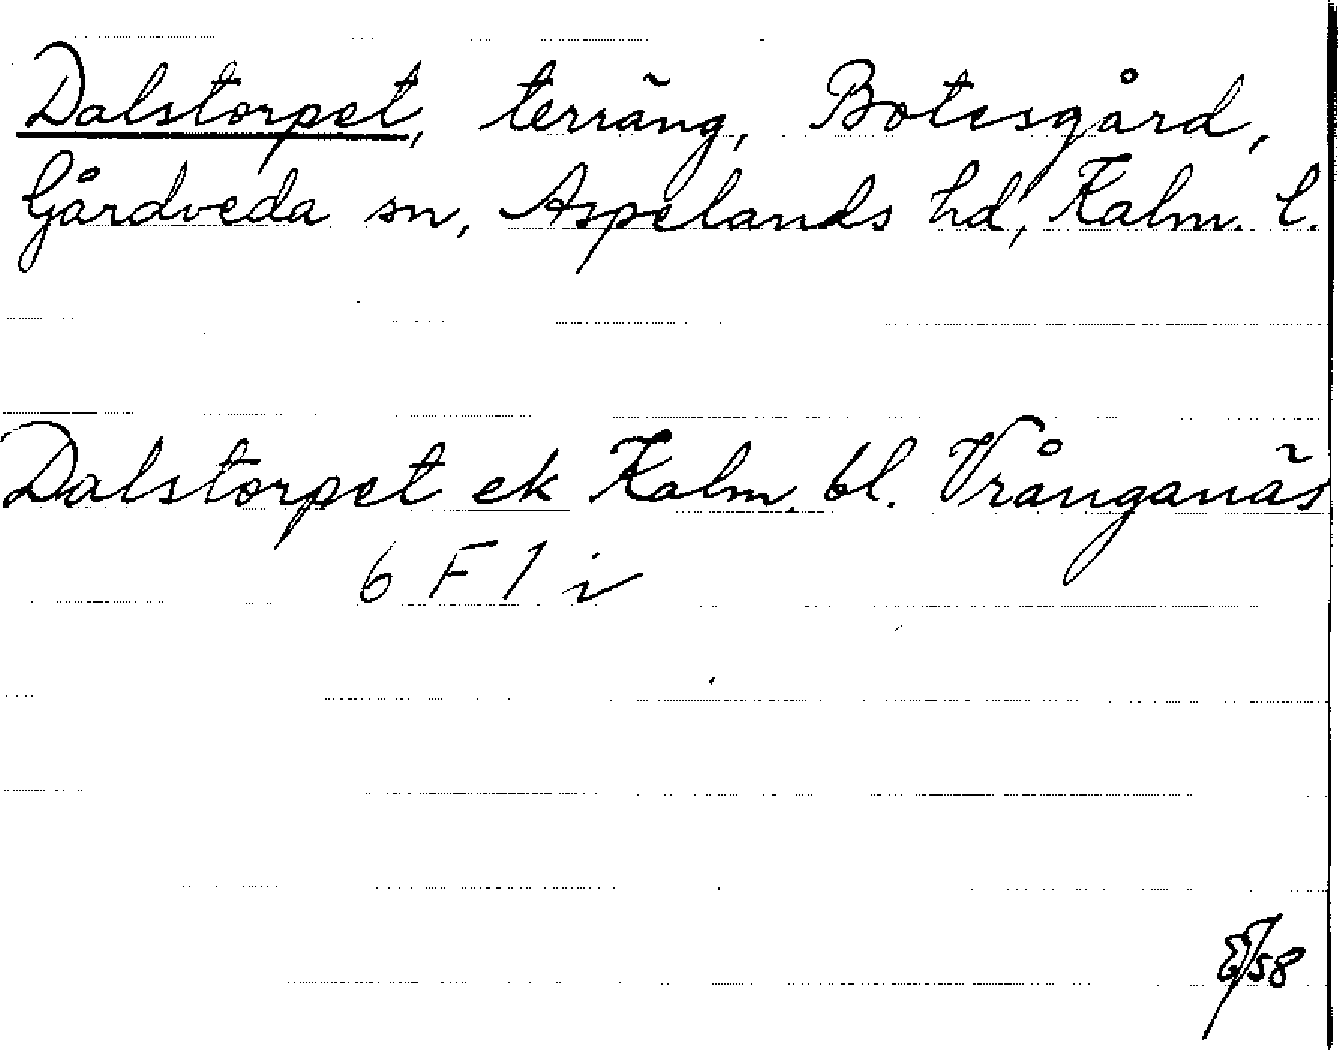 Dalstorpet, terräng, Botesgård,
Gårdveda sn, Aspelands hd, Kalm. l.
Dalstorpet ek Kalm. bl. Vrånganäs
6 F 1 i
/58